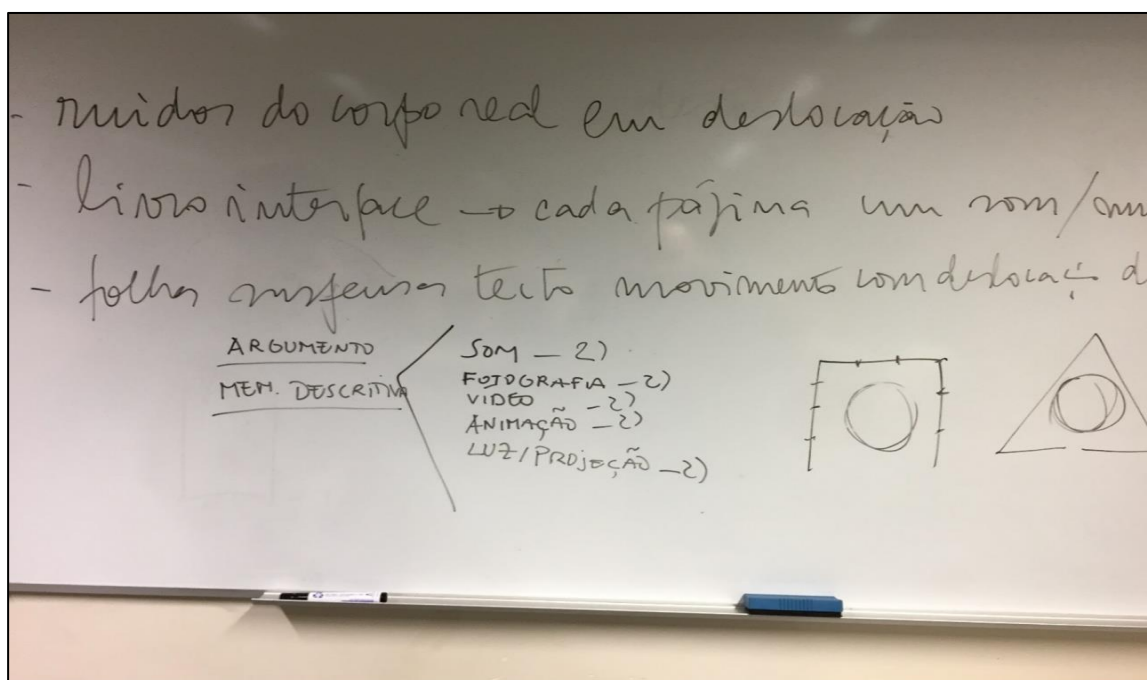 - ruidos do corpo real em deslocação
- livro interface → cada página um som/
- folhas suspensas tecto movimento com deslocaç.
ARGUMENTO
MEM. DESCRITIVA
SOM — 2)
FOTOGRAFIA — 2)
VIDEO — 2)
ANIMAÇÃO — 2)
LUZ/PROJEÇÃO — 2)